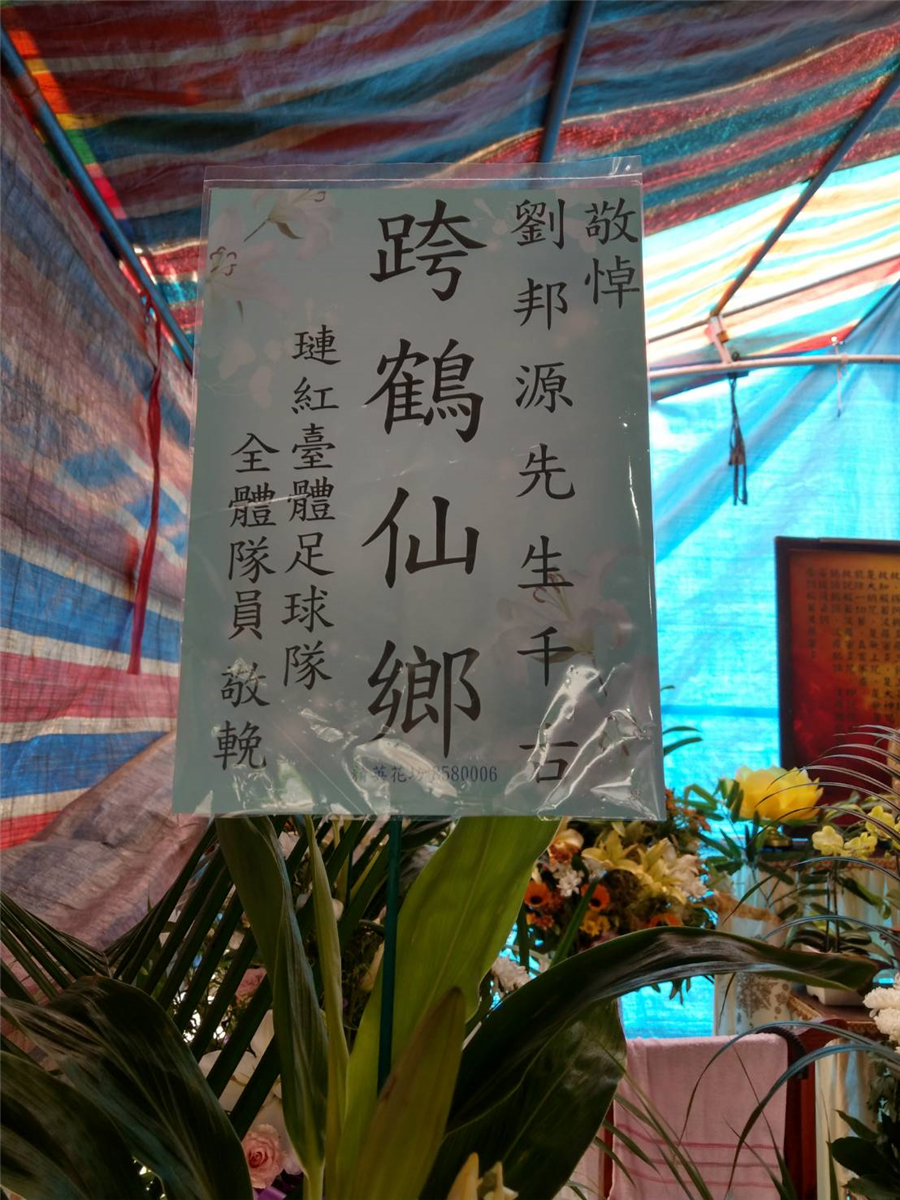 敬悼
劉邦源先生千古
跨鶴仙鄉
璉紅臺體足球隊
全體隊員 敬輓
精英花坊 8580006